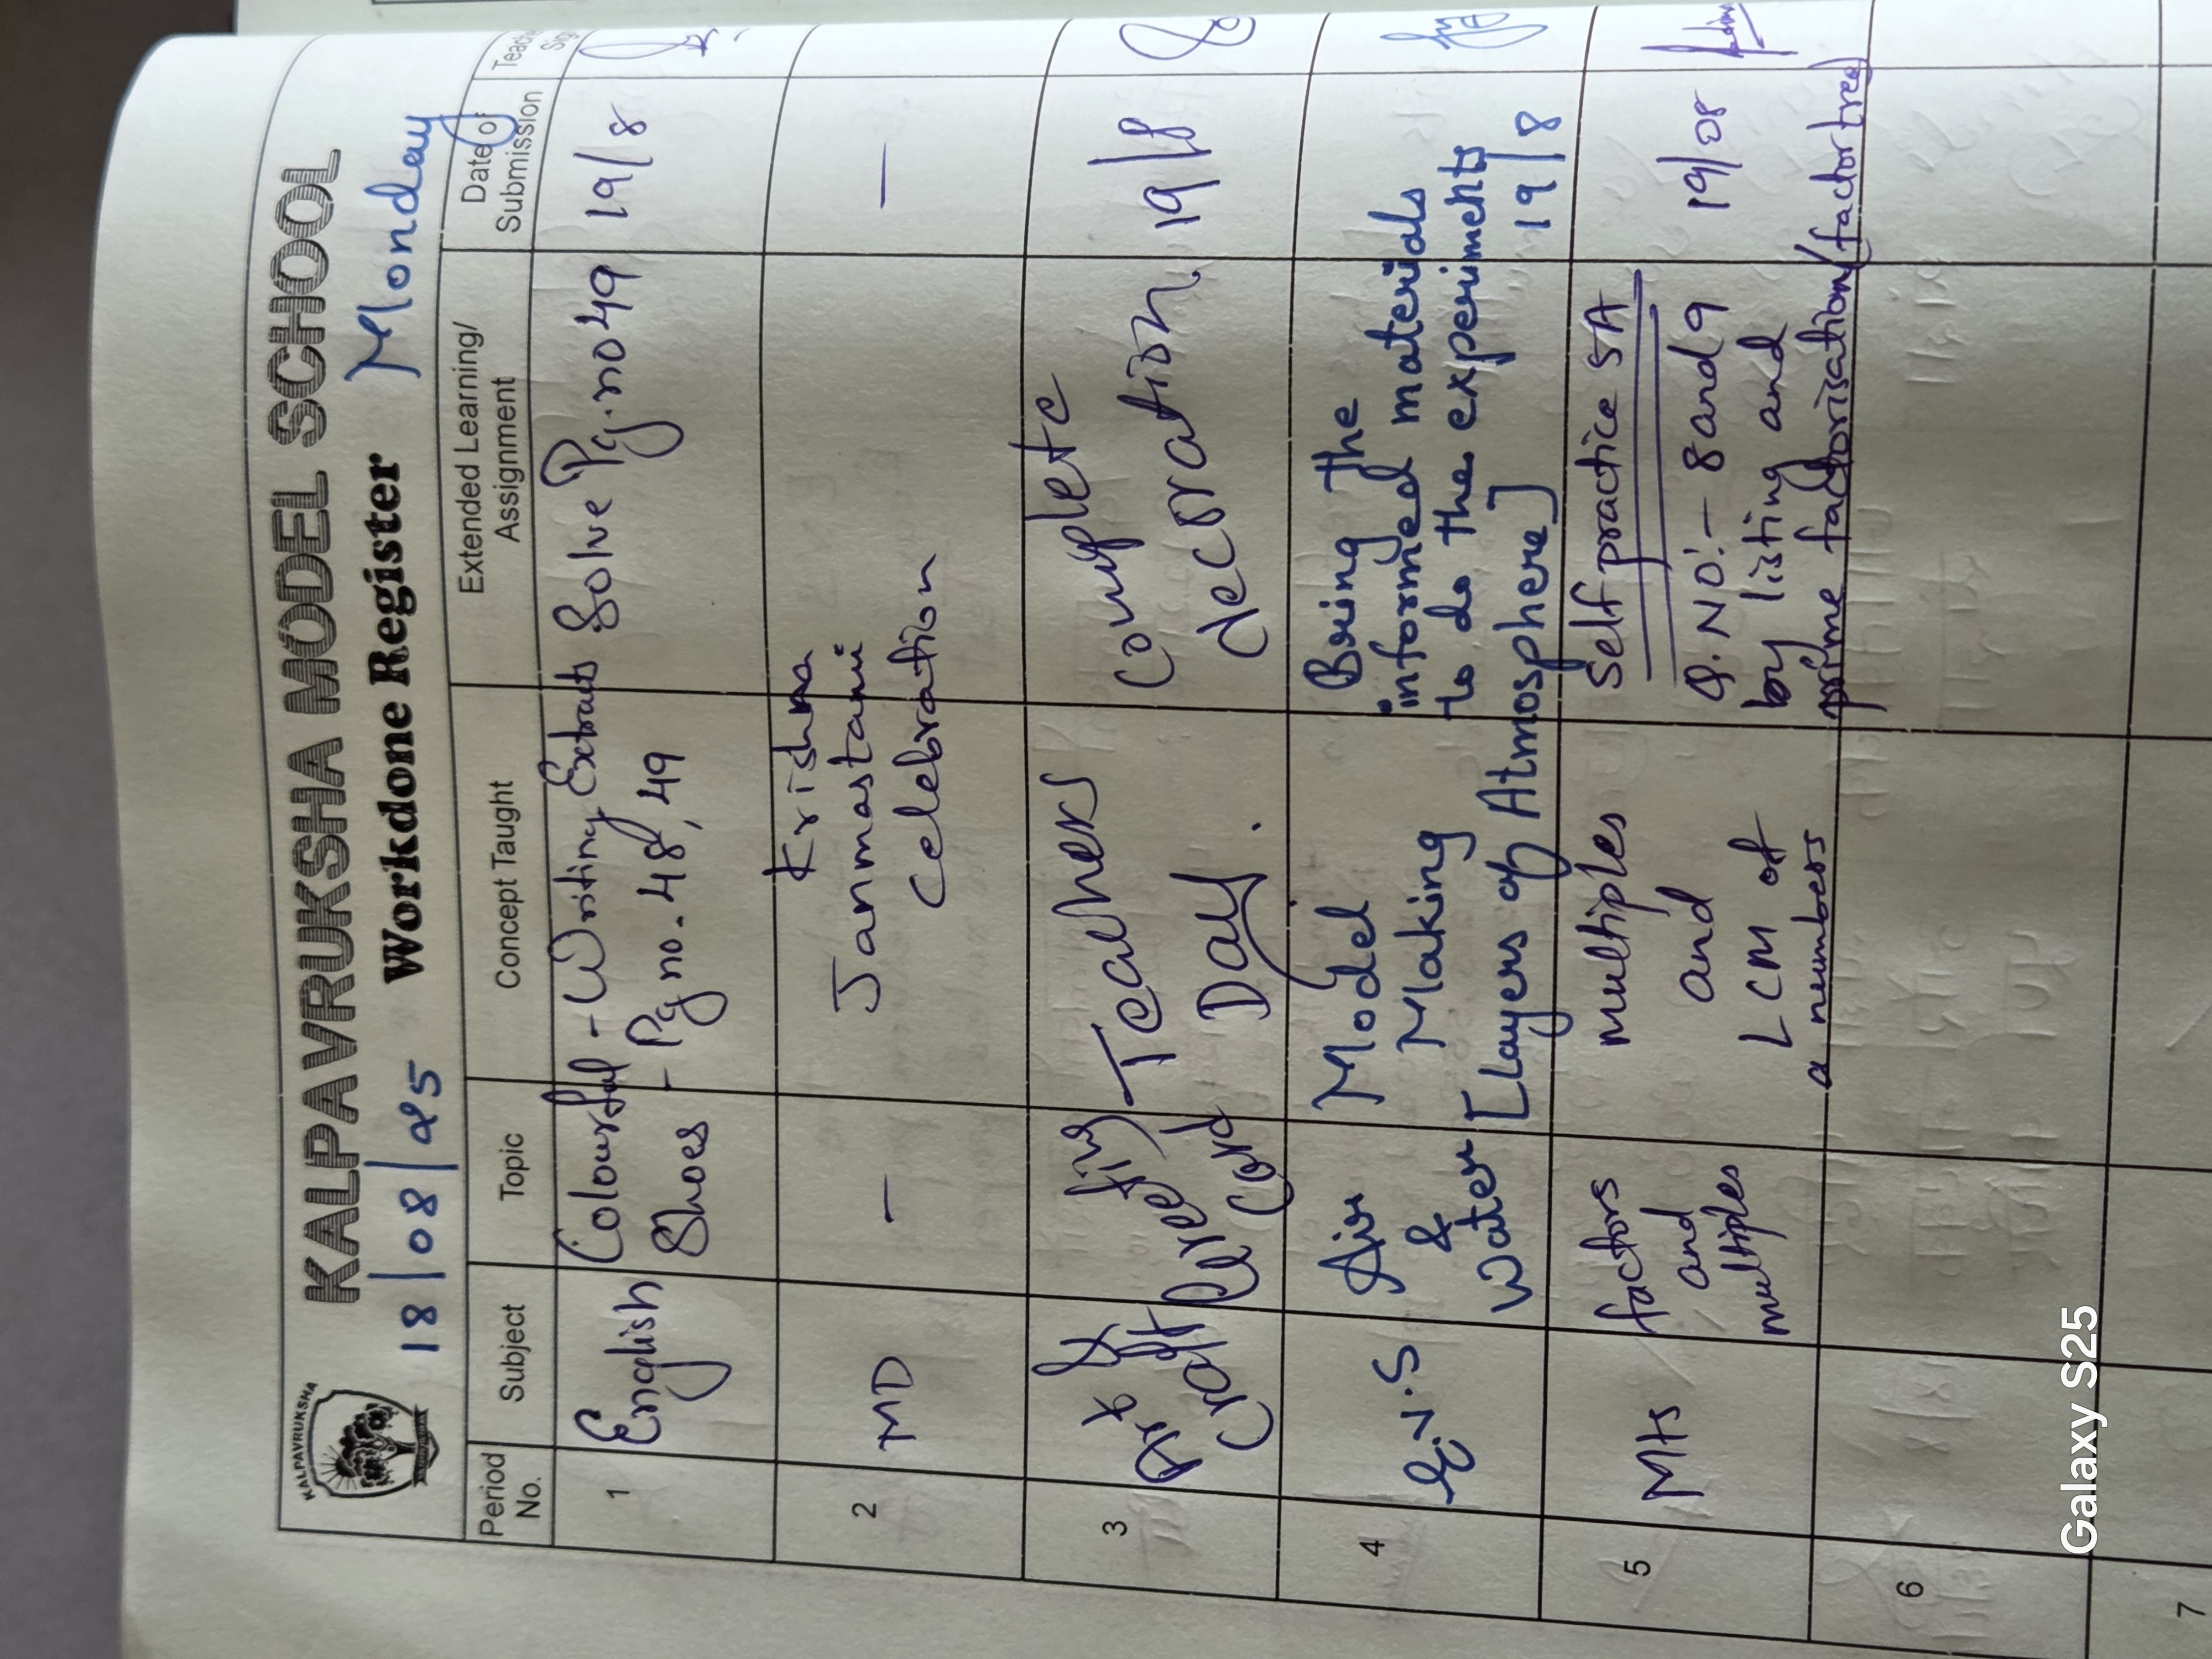 KALPAVRUKSHA
KALPAVRUKSHA MODEL SCHOOL
18/08/25 Workdone Register Monday
Period No. Subject Topic Concept Taught Extended Learning/ Assignment Date of Submission
1 English Colourful Shoes - Writing Extracts - Pg no. 48, 49 Solve Pg.no 49 19/8
2 MD — Krishna Janmastami Celebration —
3 Art & Craft Card Teachers Day. Complete decoration 19/8
4 E.V.S Air & Water Model Making [Layers of Atmosphere] Bring the informed materials to do the experiments 19/8
5 Mts factors and multiples multiples and LCM of a numbers Self practice 5A Q.NO:- 8 and 9 by listing and prime factorisation (factor tree) 19/08
6
7
Galaxy S25